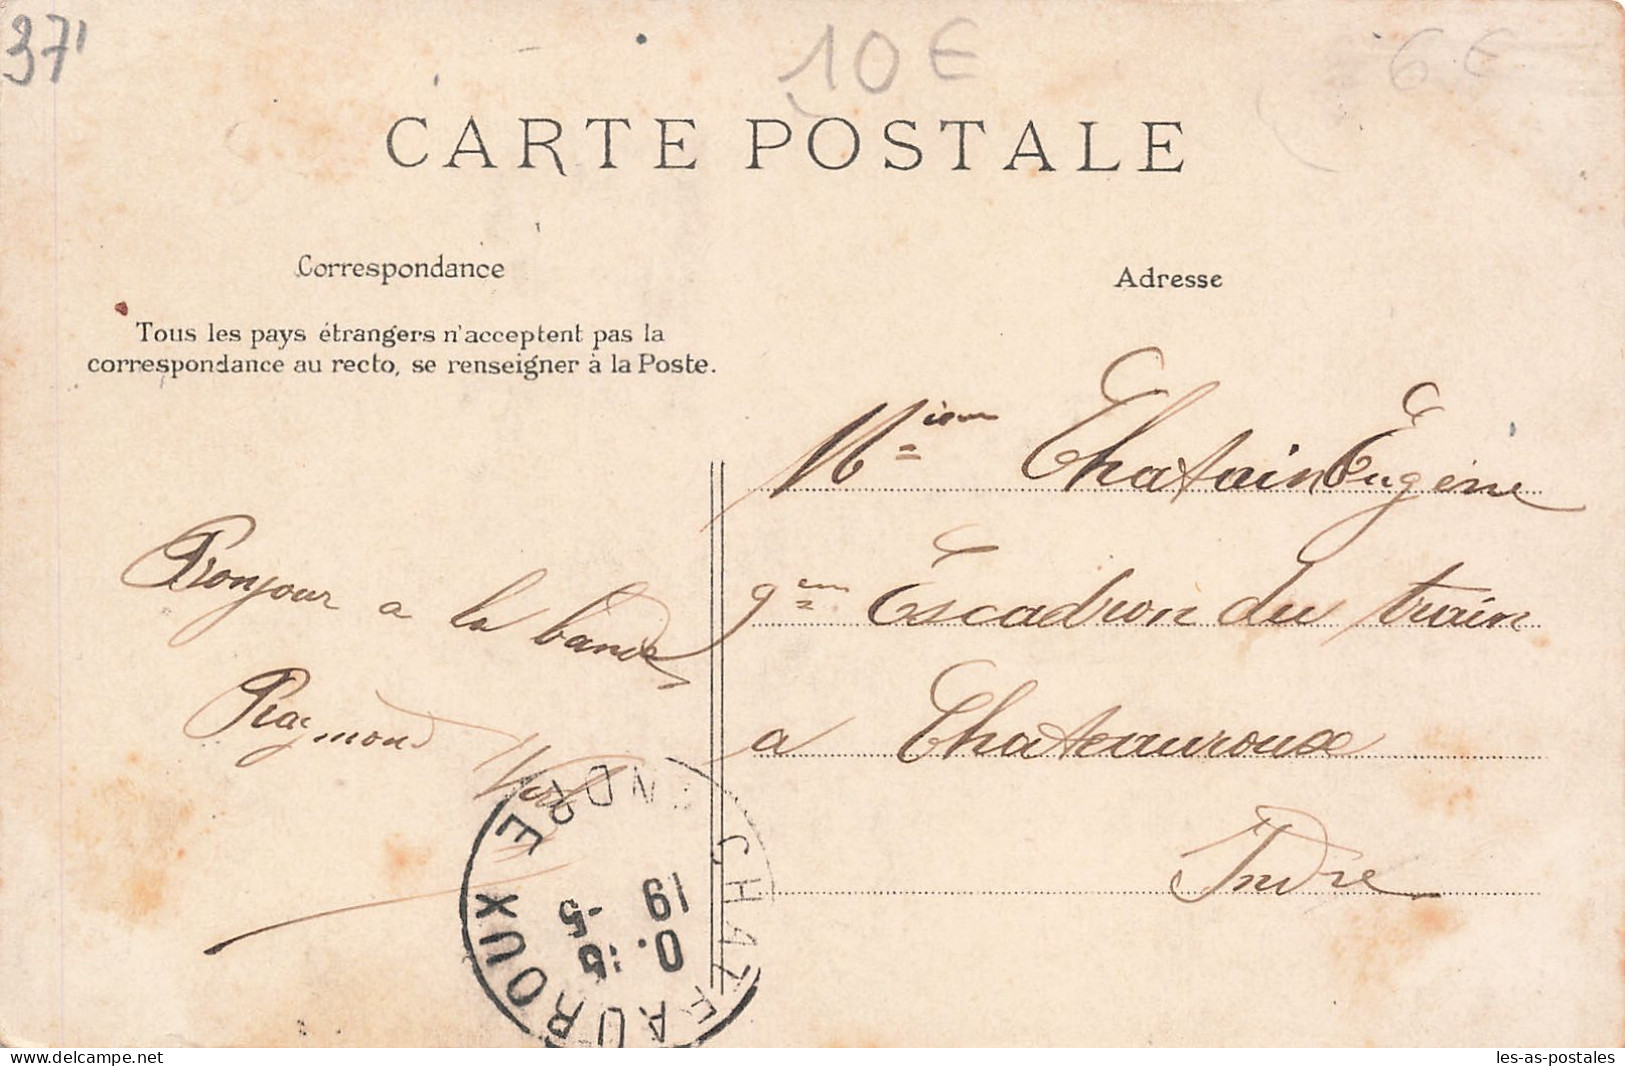 37
10 €
6 €
CARTE POSTALE
Correspondance
Adresse
Tous les pays étrangers n'acceptent pas la
correspondance au recto, se renseigner à la Poste.
Bonjour a la bande
Raymond
Msieur Chatain Eugène
9em Escadron du train
a Chateauroux
Indre
CHATEAUROUX INDRE
19
-5
les-as-postales